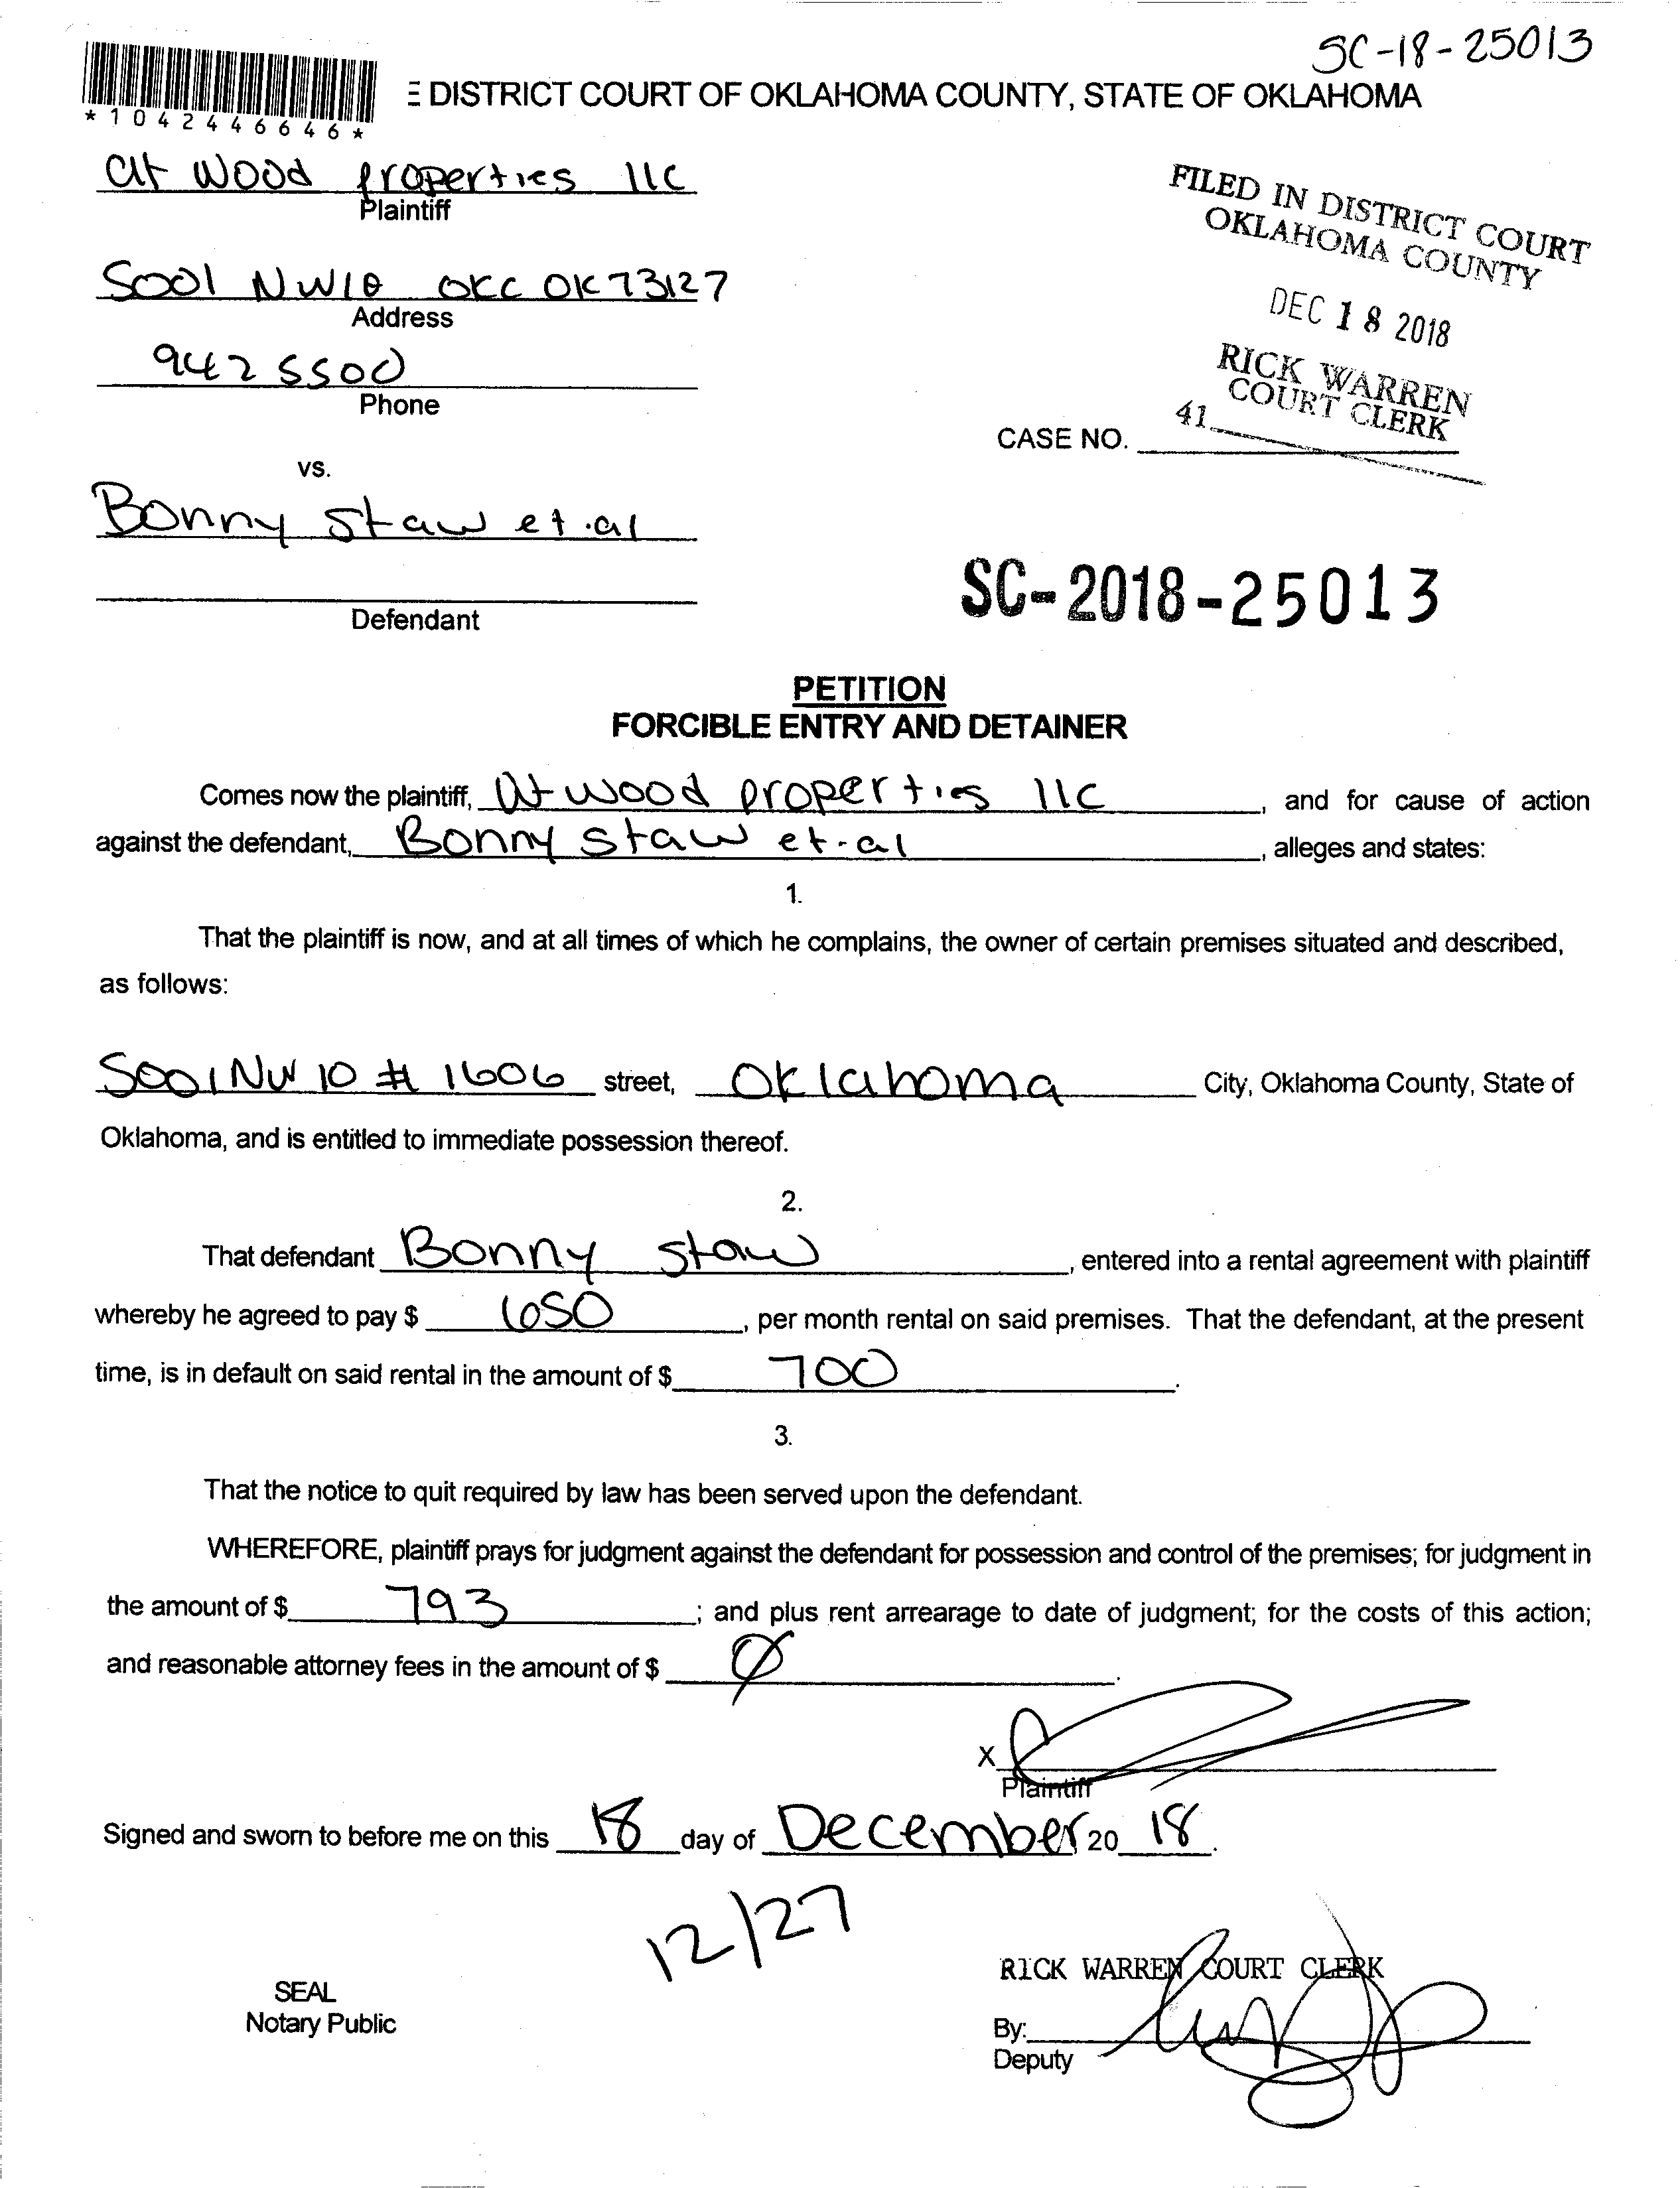 SC-18-25013
E DISTRICT COURT OF OKLAHOMA COUNTY, STATE OF OKLAHOMA
*1042446646*
At Wood properties llc
Plaintiff
FILED IN DISTRICT COURT
OKLAHOMA COUNTY
5001 NW10 OKC OK 73127
Address
DEC 18 2018
942 5500
Phone
RICK WARREN
COURT CLERK
41
CASE NO.
vs.
Bonny Staw et.al
Defendant
SC-2018-25013
PETITION
FORCIBLE ENTRY AND DETAINER
Comes now the plaintiff, At wood properties llc, and for cause of action
against the defendant, Bonny Staw et.al, alleges and states:
1.
That the plaintiff is now, and at all times of which he complains, the owner of certain premises situated and described,
as follows:
5001 NW 10 # 1606 street, Oklahoma City, Oklahoma County, State of
Oklahoma, and is entitled to immediate possession thereof.
2.
That defendant Bonny Staw, entered into a rental agreement with plaintiff
whereby he agreed to pay $ 650, per month rental on said premises. That the defendant, at the present
time, is in default on said rental in the amount of $ 700.
3.
That the notice to quit required by law has been served upon the defendant.
WHEREFORE, plaintiff prays for judgment against the defendant for possession and control of the premises; for judgment in
the amount of $ 793; and plus rent arrearage to date of judgment; for the costs of this action;
and reasonable attorney fees in the amount of $ 0.
X
Plaintiff
Signed and sworn to before me on this 18 day of December 20 18.
12/27
RICK WARREN COURT CLERK
SEAL
Notary Public
By:
Deputy